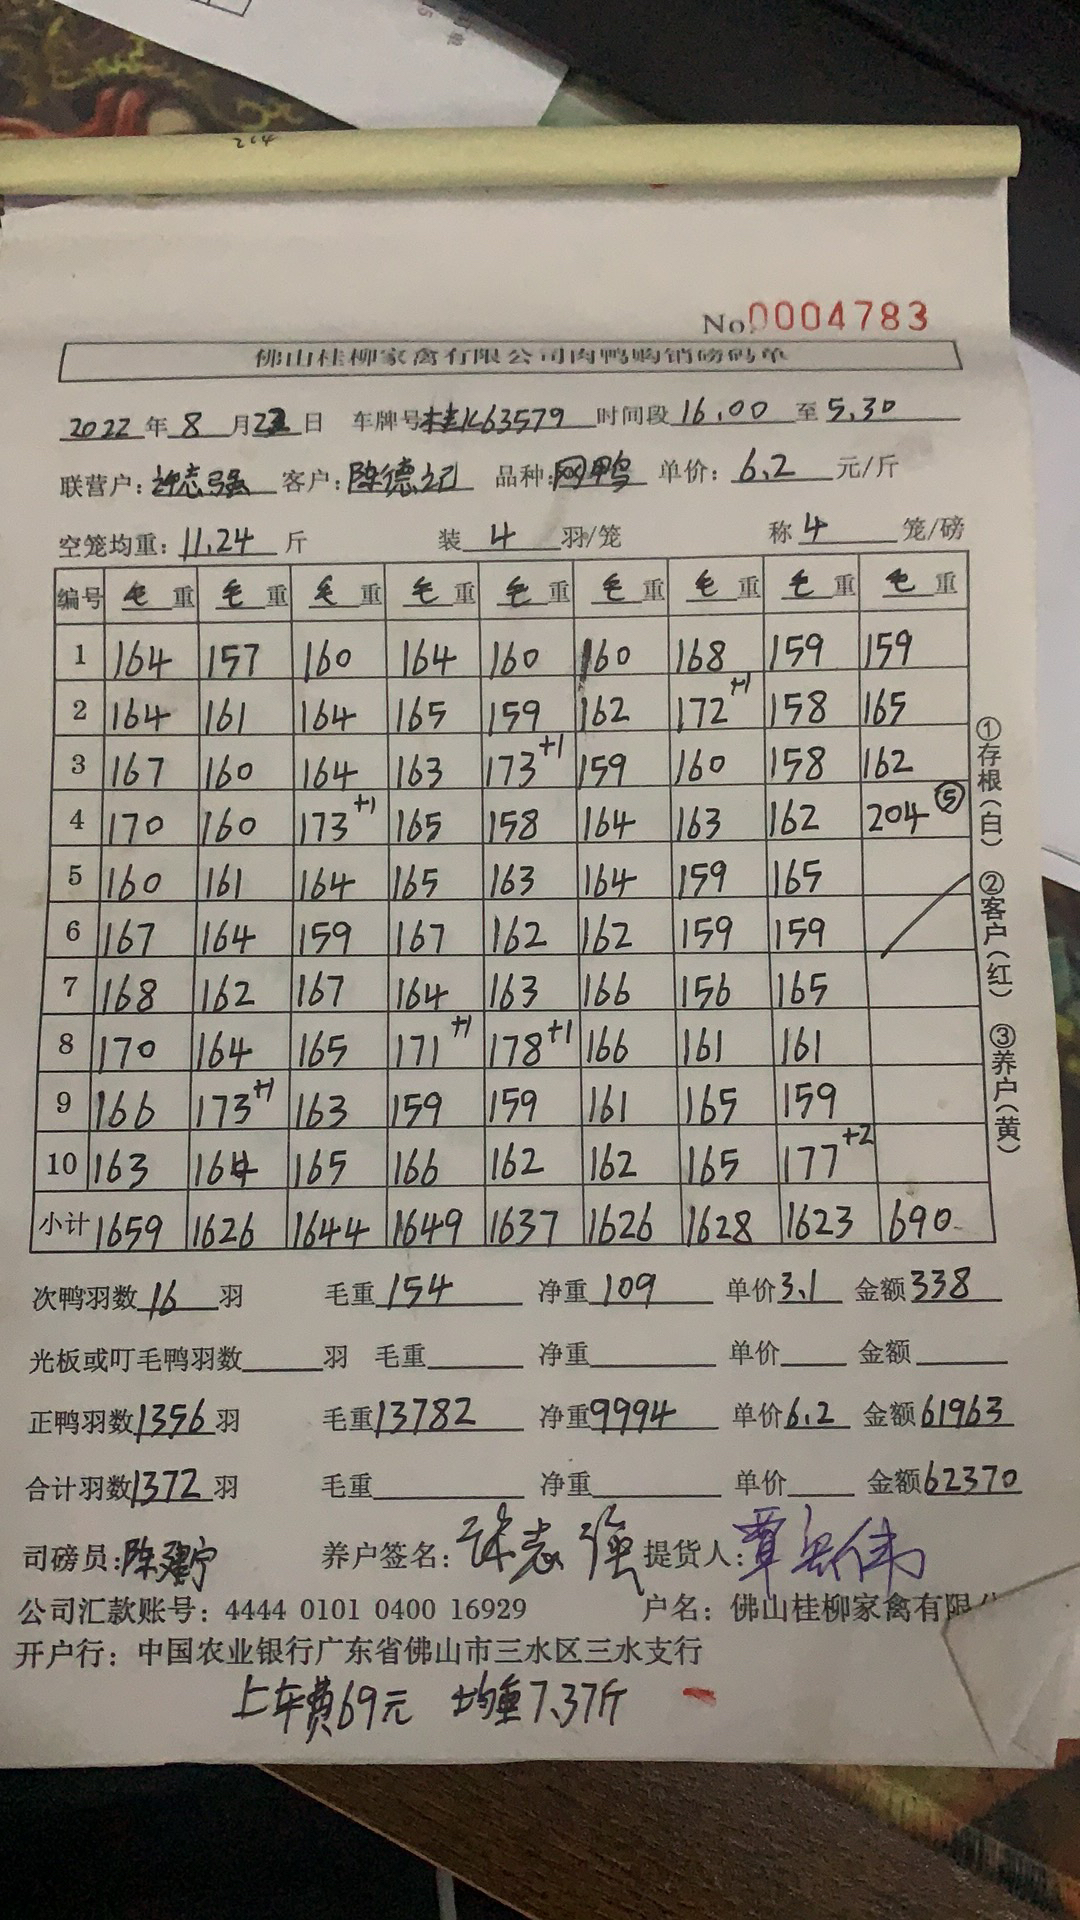 214
No.0004783
佛山桂柳家禽有限公司肉鸭购销磅码单
2022年8月22日 车牌号桂K63579 时间段16.00至5.30
联营户:许志强 客户:陈德记 品种:网鸭 单价:6.2元/斤
空笼均重:11.24斤 装4羽/笼 称4笼/磅
编号 毛重 毛重 毛重 毛重 毛重 毛重 毛重 毛重 毛重
1 164 157 160 164 160 160 168 159 159
2 164 161 164 165 159 162 172+1 158 165
3 167 160 164 163 173+1 159 160 158 162
4 170 160 173+1 165 158 164 163 162 204⑤
5 160 161 164 165 163 164 159 165
6 167 164 159 167 162 162 159 159
7 168 162 167 164 163 166 156 165
8 170 164 165 171+1 178+1 166 161 161
9 166 173+1 163 159 159 161 165 159
10 163 164 165 166 162 162 165 177+2
小计 1659 1626 1644 1649 1637 1626 1628 1623 690
①存根(白) ②客户(红) ③养户(黄)
次鸭羽数16羽 毛重154 净重109 单价3.1 金额338
光板或叮毛鸭羽数 羽 毛重 净重 单价 金额
正鸭羽数1356羽 毛重13782 净重9994 单价6.2 金额61963
合计羽数1372羽 毛重 净重 单价 金额62370
司磅员:陈建宁 养户签名:许志强 提货人:覃
公司汇款账号:4444 0101 0400 16929 户名:佛山桂柳家禽有限
开户行:中国农业银行广东省佛山市三水区三水支行
上车费69元 均重7.37斤